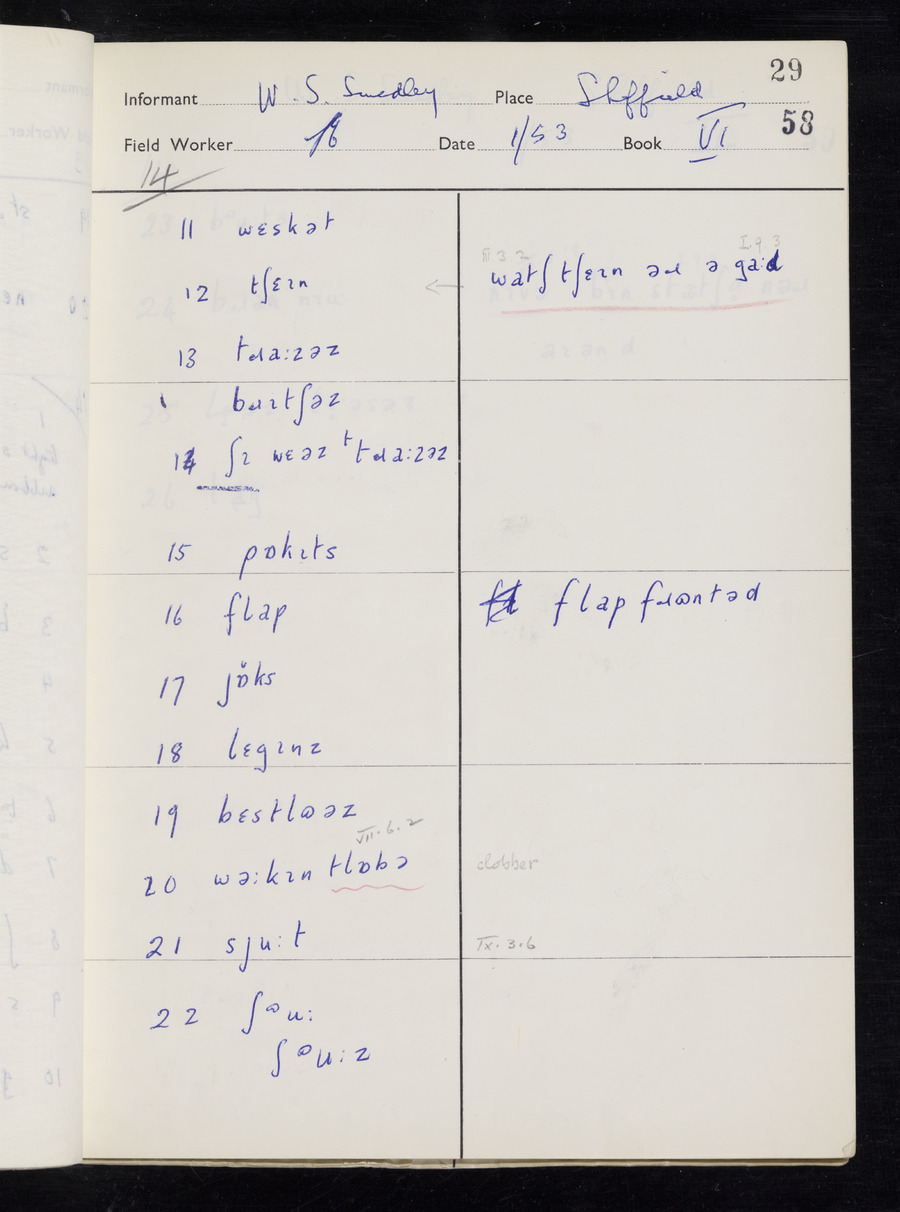 29
Informant W. S. Smedley Place Sheffield
58
Field Worker Date 1/53 Book VI
14
11 wɛskət
III 3 2 I 9 3
12 tʃɛɪn ← watʃ tʃɛɪn əɹ ə ga:d
13 tɹa:zəz
bɹɪtʃəz
14 ʃɪ wɛəz ᵗtɹa:zəz
15 pɒkɪts
16 flap flap fɹɷntəd
17 jɒ̆ks
18 lɛgɪnz
19 bɛstlɷəz
VII.6.2
20 wə:kɪn tlɒbə clobber
21 sju:t IX.3.6
22 ʃᶷu:
ʃᶷu:z